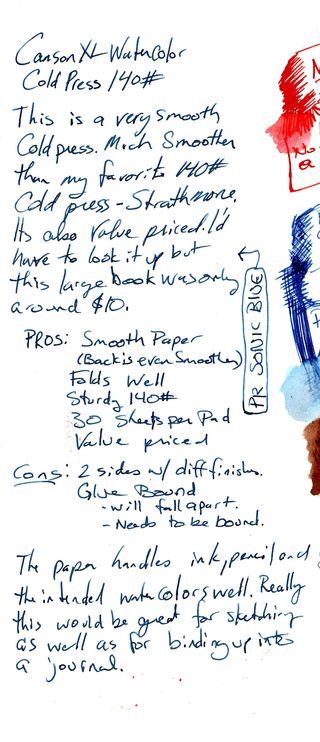 Canson XL Watercolor
Cold Press 140#
This is a very smooth
Cold press. Much Smoother
than my favorite 140#
Cold press - Strathmore.
Its also Value priced. I'd
have to look it up but
this large book was only
around $10.
PR SONIC BLUE
PROS: Smooth Paper
(Back is even Smoother)
Folds Well
Sturdy 140#
30 Sheets per Pad
Value priced
Cons: 2 sides w/ diff finishes.
Glue Bound
- will fall apart.
- Needs to be bound.
The paper handles ink, pencil and
the intended watercolors well. Really
this would be great for sketching
as well as for binding up into
a journal.